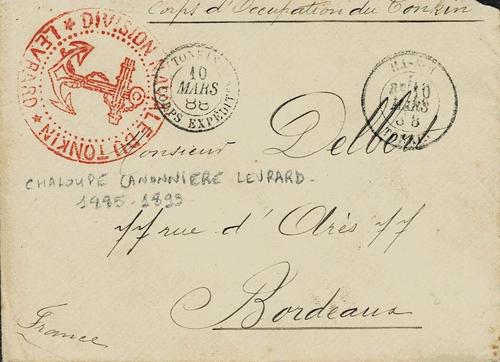 Corps d'Occupation du Tonkin
DIVISION NAVALE DU TONKIN * LEVRARD *
TONKIN
10
MARS
88
CORPS EXPED
10
MARS
88
Monsieur Delbert
CHALOUPE CANONNIERE LEVRARD-
1885-1893
77 rue d'Arès 77
Bordeaux
France